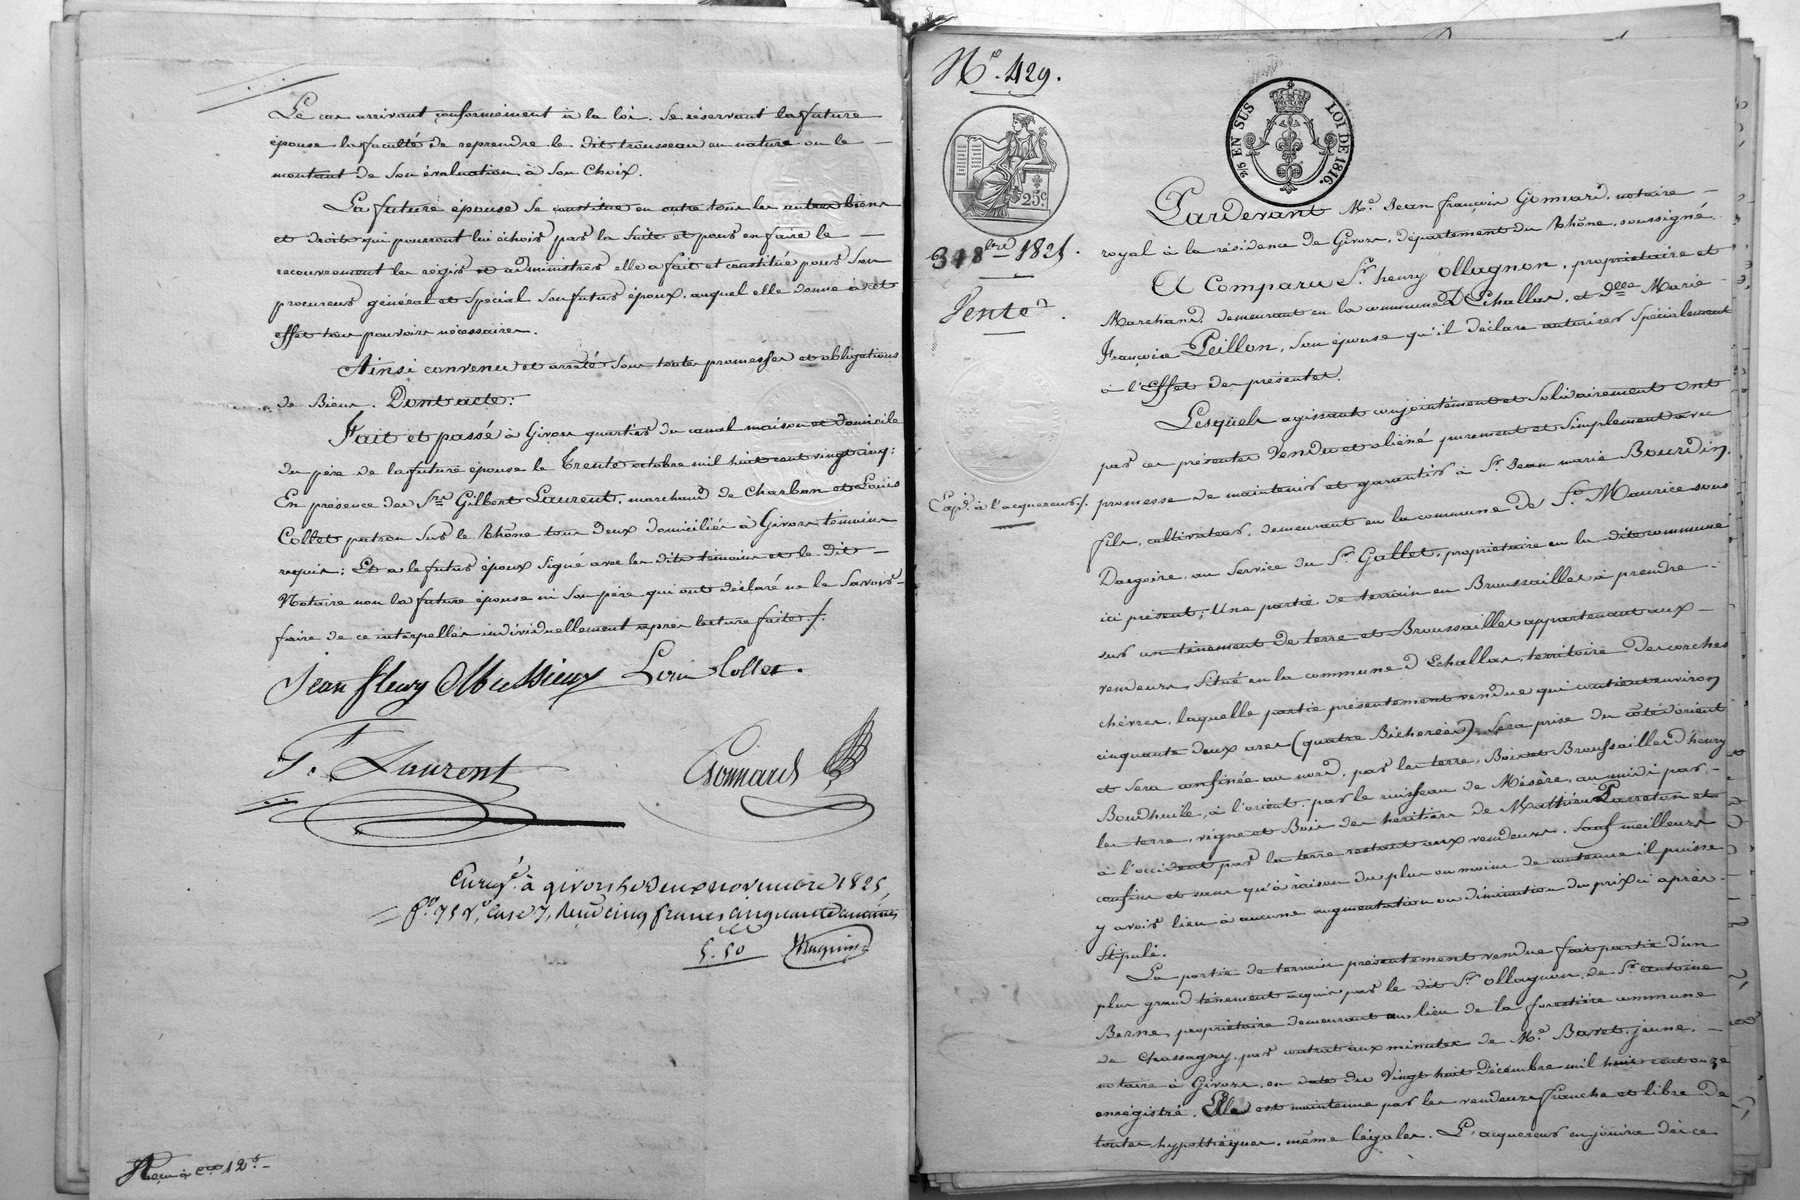 Le cas arrivant conformement à la loi. Se réservant la future
épouse la faculté de reprendre le dit trousseau en nature ou le
montant de son évaluation à son choix.
La future épouse se constitue en outre tous les autres biens
et droits qui pourront lui échoir par la suite et pour en faire le
recouvrement les régir et administrer elle a fait et constitué pour son
procureur général et spécial son futur époux, auquel elle donne à cet
effet tous pouvoirs nécessaires.
Ainsi convenu et arrêté sous toutes promesses et obligations
de Biens. Dont acte:
Fait et passé à Givors quartier du canal maison et domicile
du père de la future épouse le Trente octobre mil huit cent vingt cinq:
En présence des Srs Gilbert Laurent, marchand de Charbon et Louis
Collet patron sur le Rhône tous deux domiciliés à Givors témoins
requis; Et a le futur époux signé avec les dits témoins et le dit
Notaire non la future épouse ni son père qui ont déclaré ne le savoir
faire de ce interpellés individuellement après lecture faite ./.
Jean fleury Mussieux Louis Collet.
G. Laurent Gomard
Enregé. à givors le deux novembre 1825
fo. 75 Vo. Case 7, Reçu cinq francs cinquante centimes
5.50
No. 429.
25c
2/5 EN SUS LOI DE 1816.
3 9bre 1825.
Vente
Expon. à l'acquereur ./.
Pardevant Me. Jean françois Gomard, notaire
royal à la résidence de Givors, département du Rhône, soussigné.
A Comparu Sr. henry Ollagnon, propriétaire et
Marchand, demeurant en la commune D'Echallas, et delle Marie
Françoise Peillon, son épouse qu'il déclare autoriser spécialement
à l'effet des présentes.
Lesquels agissant conjointement et solidairement ont
par ces présentes Vendu et aliéné purement et simplement avec
promesse de maintenir et garantir à Sr. Jean marie Bourdin
fils, cultivateur, demeurant en la commune de St. Maurice sous
Dargoire, au service du Sr. Gallet, propriétaire en la dite commune
ici présent; Une partie de terrain en Broussailles à prendre
sur un tènement de terre et Broussailles appartenant aux
vendeurs, Situé en la commune d'Echallas, territoire des corches
chèvres, laquelle partie présentement vendue qui contient environ
cinquante deux ares (quatre Bicherées), sera prise du côté d'orient
et sera confinée au nord, par les terre, Bois et Broussailles d'henry
Boudheile, à l'orient, par le ruisseau de Mésère, au midi par
les terre, vigne et Bois des héritiers de Mathieu Parreton et
à l'occident par la terre restant aux vendeurs. Sauf meilleurs
confins et sans qu'à raison du plus ou moins de contenue il puisse
y avoir lieu à aucune augmentation ou diminution du prix ci après
Stipulé.
La partie de terrain présentement vendue fait partie d'un
plus grand tènement acquis par le dit Sr. Ollagnon, de Sr. antoine
Berne, propriétaire demeurant au lieu de la forestière commune
de Chassagny, par contrat aux minutes de Me. Baret, jeune,
notaire à Givors, en date du Vingt huit décembre mil huit cent onze
enrégistré. Elle est maintenue par les vendeurs franche et libre de
toutes hypothèques, même légales. L'acquereur en jouira dès ce